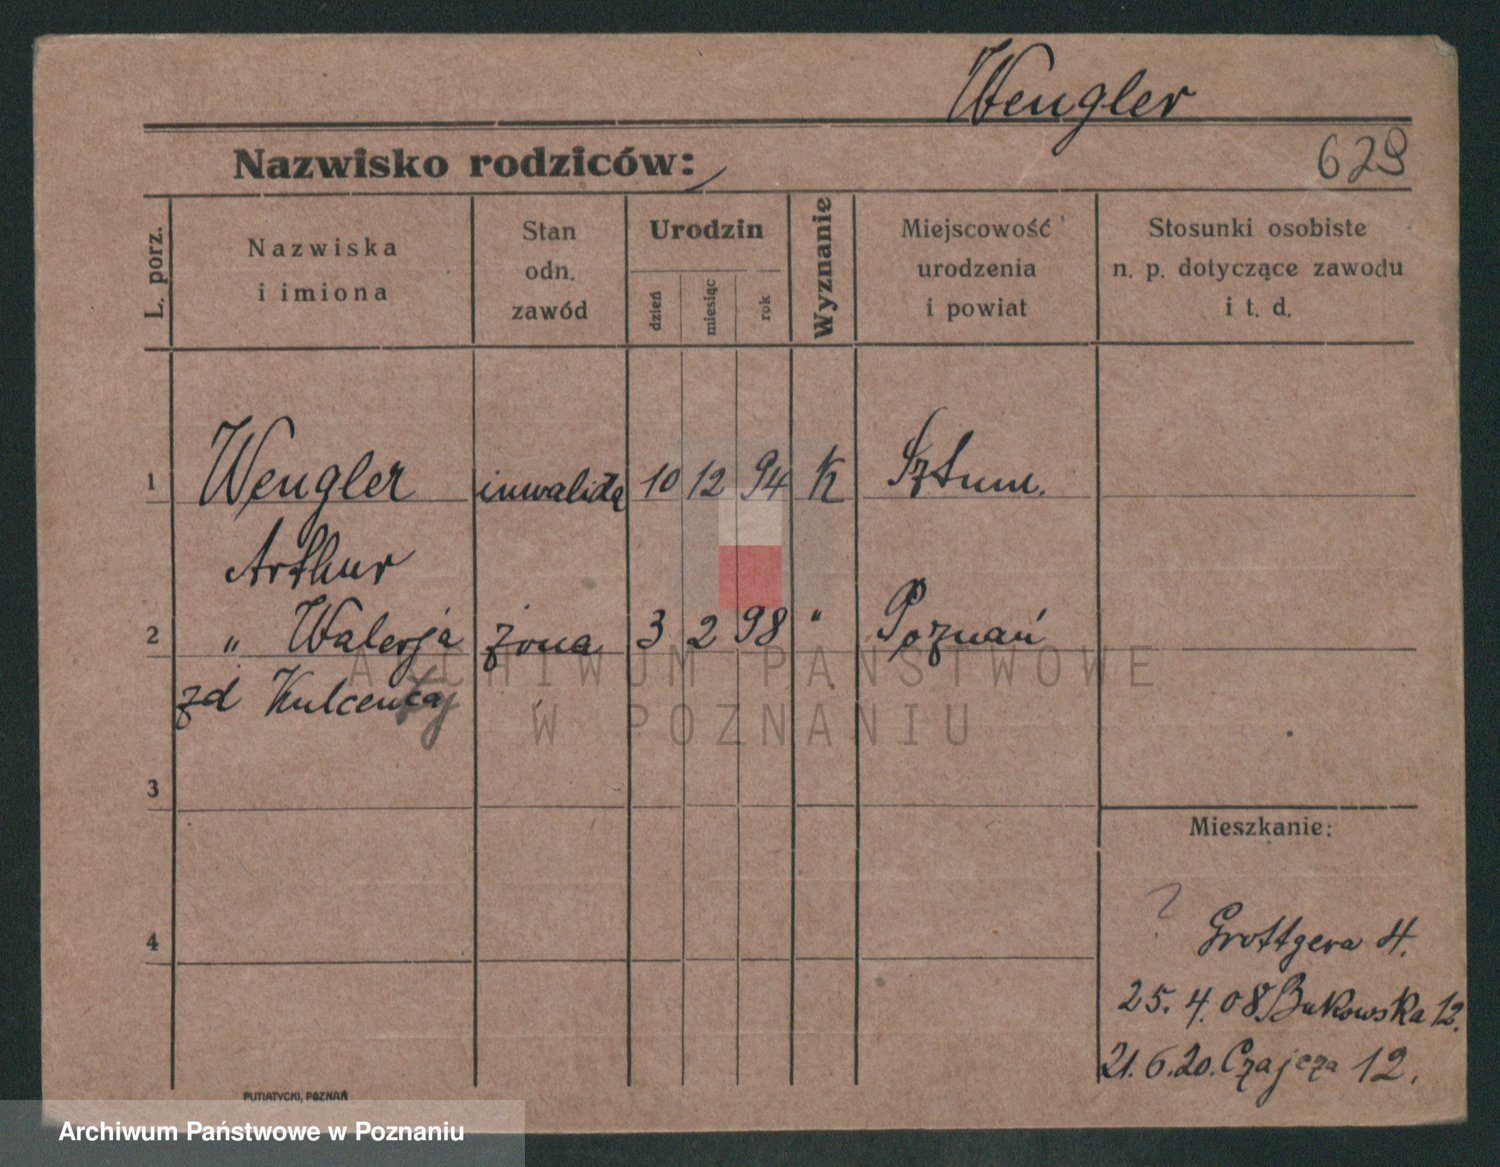 Wengler
Nazwisko rodziców:
629
L. porz.
Nazwiska
i imiona
Stan
odn.
zawód
Urodzin
dzień
miesiąc
rok
Wyznanie
Miejscowość
urodzenia
i powiat
Stosunki osobiste
n. p. dotyczące zawodu
i t. d.
1 Wengler inwalida 10 12 94 K Sztum.
Arthur
2 " Walerja żona 3 2 98 " Poznań
zd
3
4
Mieszkanie:
?
Grottgera 4.
25. 4. 08 Bukowska 12.
21. 6. 20. Czajcza 12.
PUTIATYCKI, POZNAŃ
ARCHIWUM PAŃSTWOWE
W POZNANIU
Archiwum Państwowe w Poznaniu